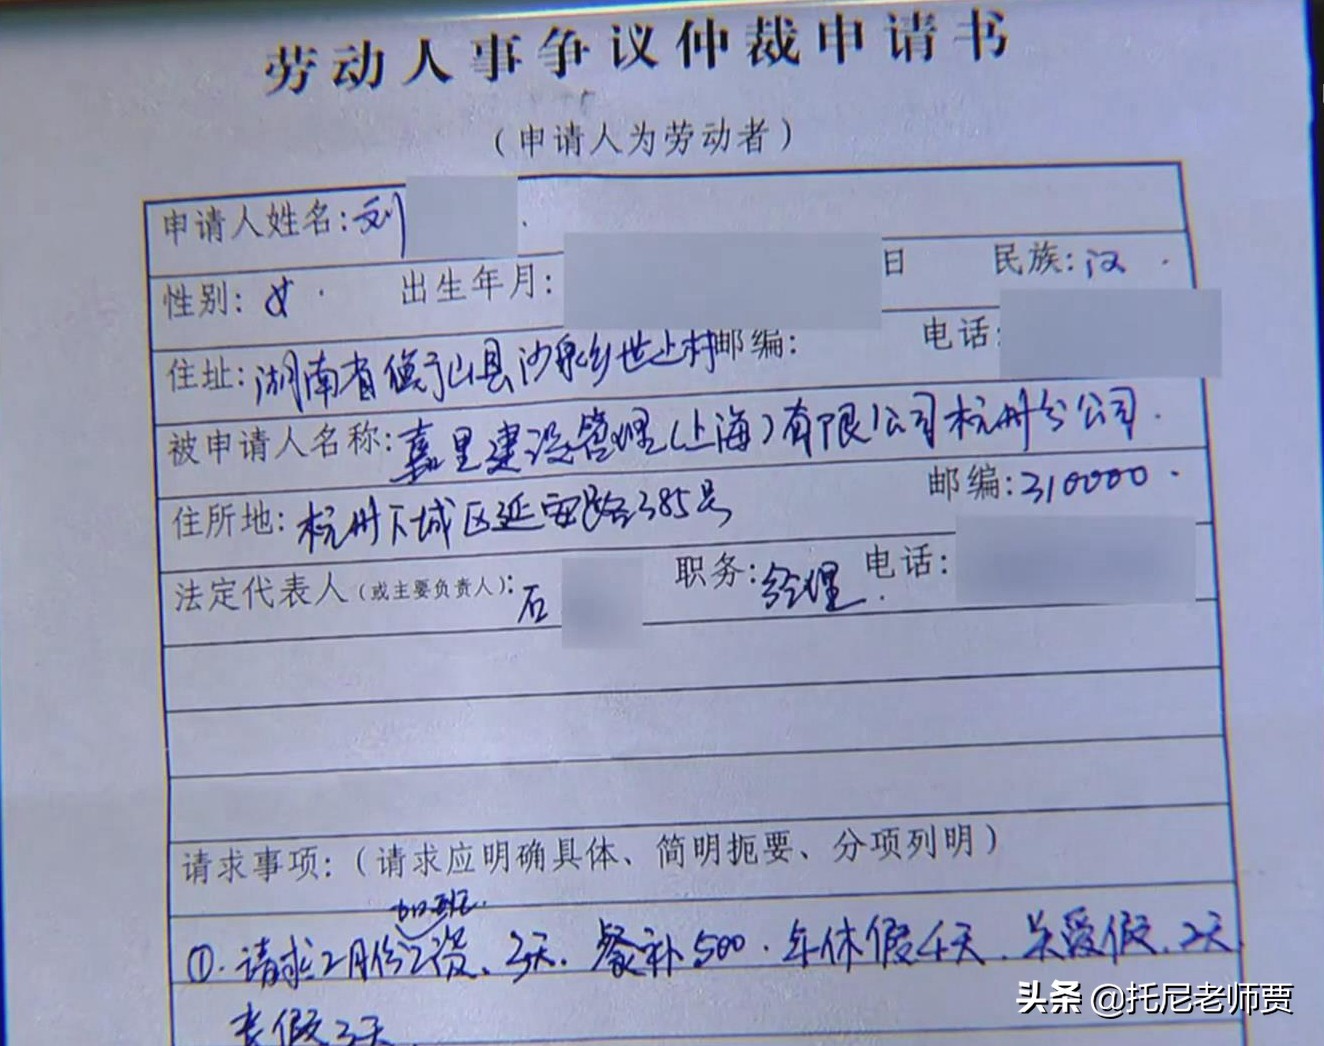 劳动人事争议仲裁申请书
（申请人为劳动者）
申请人姓名：刘
性别：女 出生年月： 日 民族：汉
住址：湖南省衡山县沙泉乡世上村 邮编： 电话：
被申请人名称：嘉里建设管理（上海）有限公司杭州分公司
住所地：杭州下城区延安路385号 邮编：310000
法定代表人（或主要负责人）：石 职务：经理 电话：
请求事项：（请求应明确具体、简明扼要、分项列明）
加班
①.请求2月份工资、3天.餐补500.年休假4天.关爱假.2天
假3天
头条 @托尼老师贾